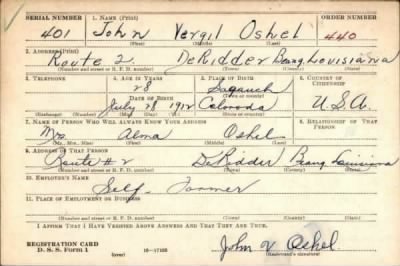 SERIAL NUMBER 1. NAME (Print) ORDER NUMBER
401 John Vergil Oshel 440
(First) (Middle) (Last)
2. ADDRESS (Print)
Route 2. DeRidder Beaug. Louisiana
(Number and street or R. F. D. number) (Town) (County) (State)
3. TELEPHONE 4. AGE IN YEARS 5. PLACE OF BIRTH 6. COUNTRY OF CITIZENSHIP
28 Saguach
DATE OF BIRTH (Town or county)
July 28 1912 Colorado U.S.A.
(Exchange) (Number) (Mo.) (Day) (Yr.) (State or country)
7. NAME OF PERSON WHO WILL ALWAYS KNOW YOUR ADDRESS 8. RELATIONSHIP OF THAT PERSON
Mrs Alma Oshel
(Mr., Mrs., Miss) (First) (Middle) (Last)
9. ADDRESS OF THAT PERSON
Route # 2 DeRidder Beaug. Louisiana
(Number and street or R. F. D. number) (Town) (County) (State)
10. EMPLOYER'S NAME
Self - Farmer
11. PLACE OF EMPLOYMENT OR BUSINESS
(Number and street or R. F. D. number) (Town) (County) (State)
I AFFIRM THAT I HAVE VERIFIED ABOVE ANSWERS AND THAT THEY ARE TRUE.
REGISTRATION CARD
D. S. S. Form 1 (over) 16-17105 John V Oshel.
(Registrant's signature)